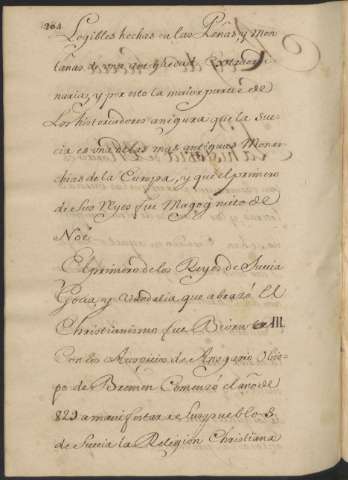 204
Legibles hechas en las Peñas, y Mon-
tañas de una antiguedad Extraordi-
naria, y por esto la maior parte de
Los historiadores asegura que la Sue-
cia es una de las mas antiguas Monar-
chias de la Europa, y que el primero
de sus Reyes fue Magog nieto de
Noé.
El primero de los Reyes de Suecia
Gocia, y Vandalia que abrazó El
Christianismo fue Biorn III
Con los Auspicios de Ansgario Obis-
po de Bremen Comenzó el año de
829 a manifestarse en los pueblos
de Suecia la Religion Christiana